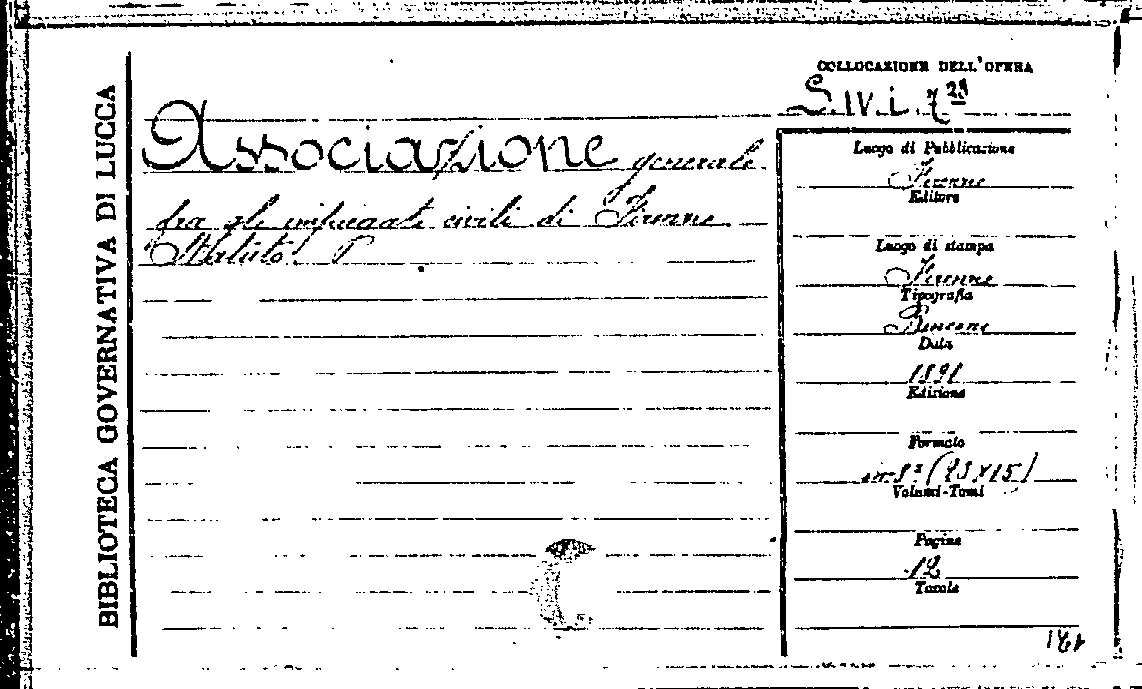 BIBLIOTECA GOVERNATIVA DI LUCCA
COLLOCAZIONE DELL'OPERA
S.IV.i.7²³
Associazione generale
fra gli impiegati civili di Firenze
Statuto.
Luogo di Pubblicazione
Firenze
Editore
Luogo di stampa
Firenze
Tipografia
Data
1891
Edizione
Formato
in-8° (23×15)
Volumi-Tomi
Pagine
12
Tavole